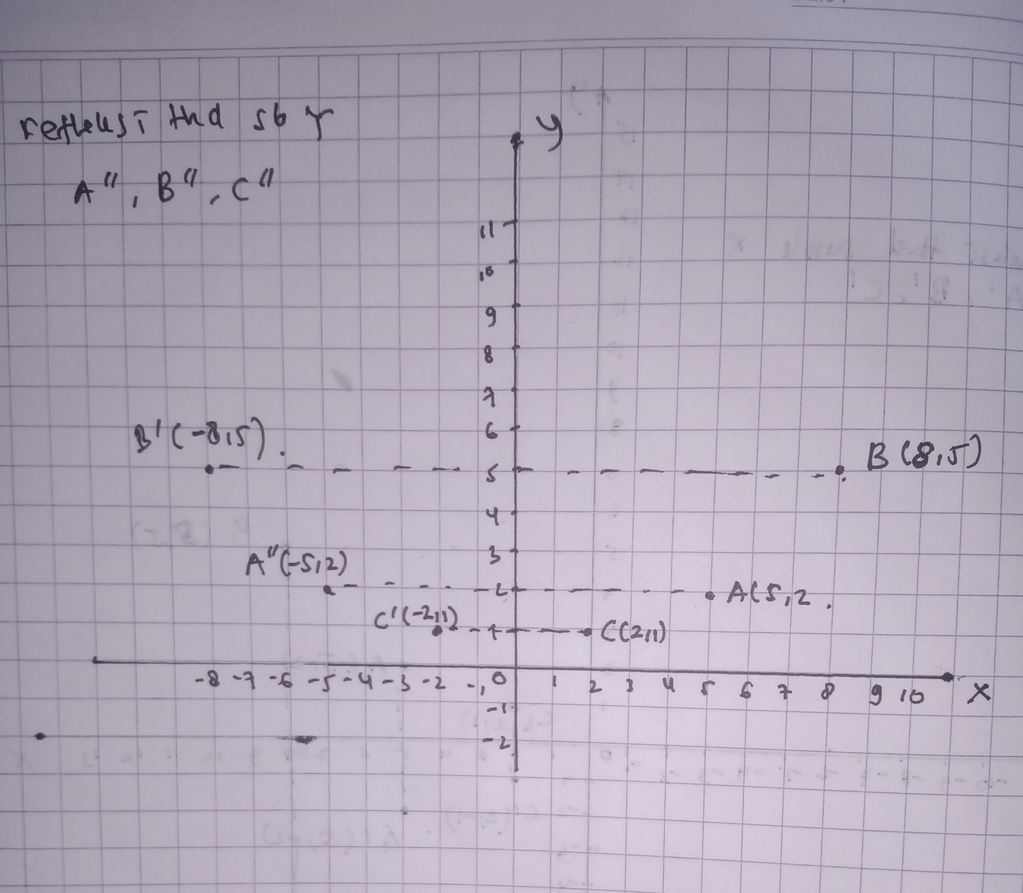 refleksi thd sb Y
A", B", C"
y
11
10
9
8
7
6
B'(-8,5).
5
B (8,5)
4
3
A"(-5,2)
2
A(5,2.
C'(-2,1)
1
C(2,1)
-8 -7 -6 -5 -4 -3 -2 -1 0 1 2 3 4 5 6 7 8 9 10 X
-1
-2